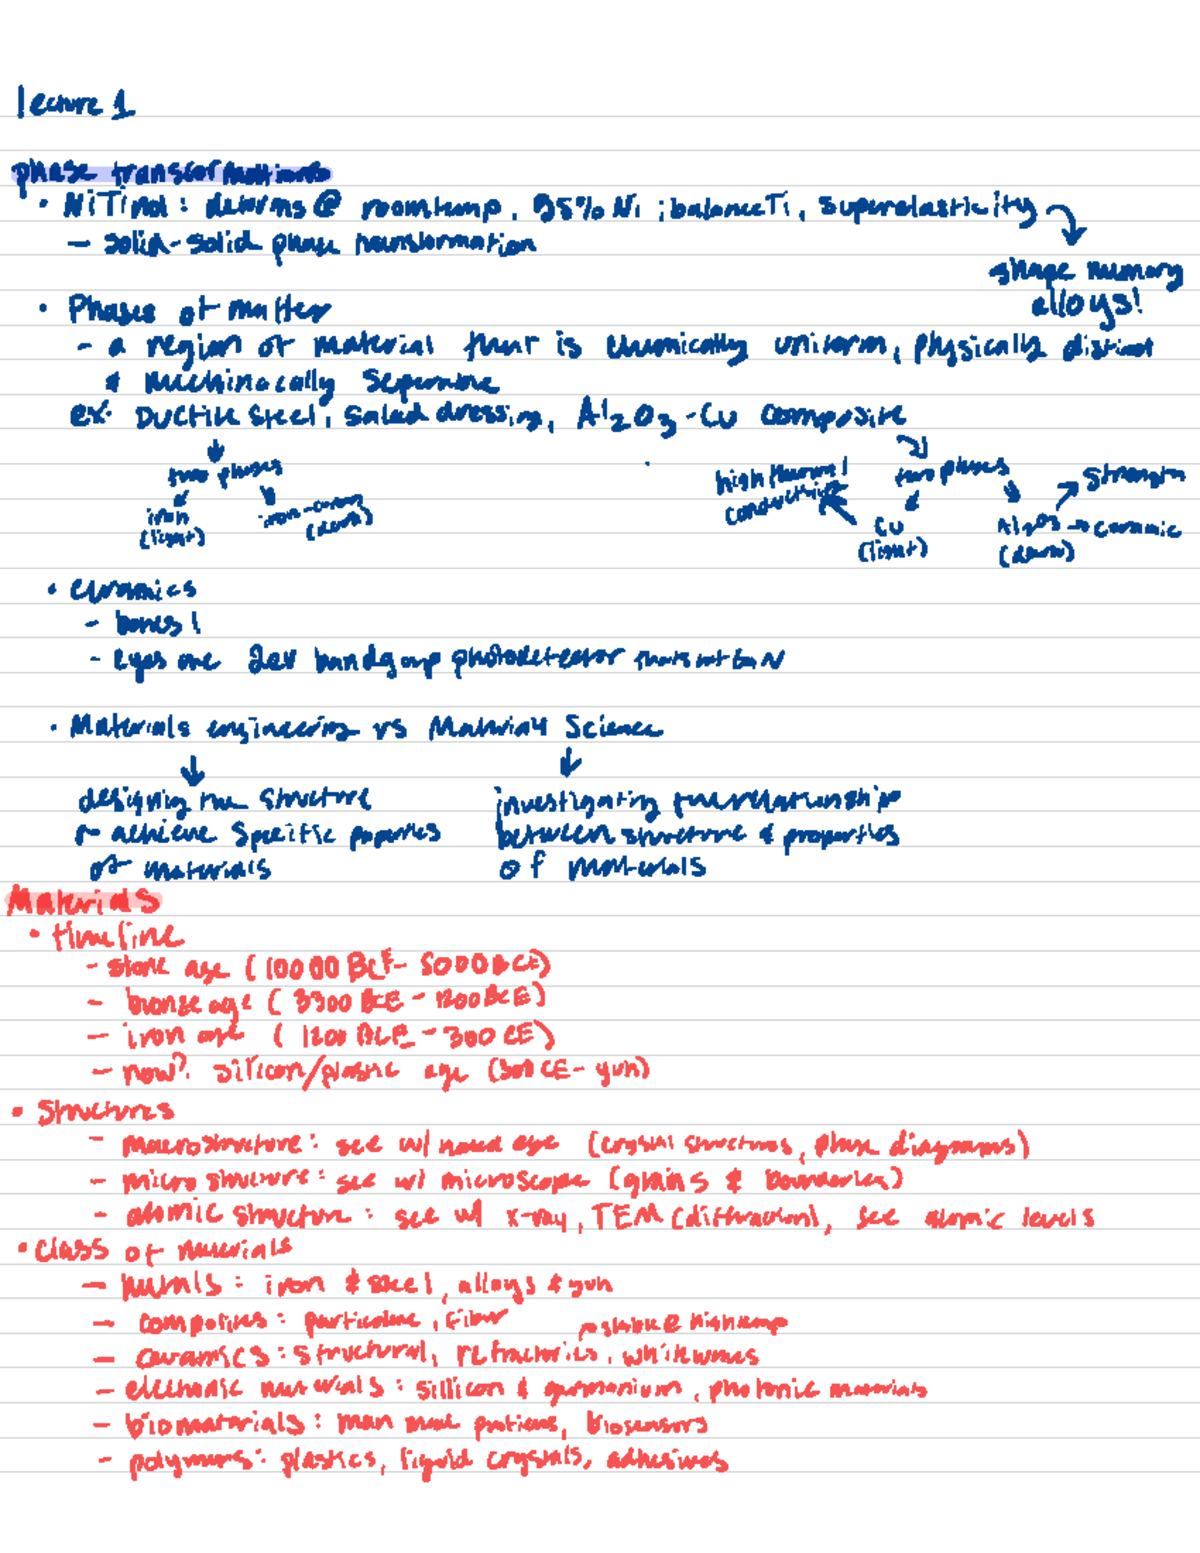 lecture 1
phase transformations
• NiTinol: deforms @ room temp, 55% Ni; balance Ti, superelasticity
– solid-solid phase transformation
shape memory
alloys!
• Phases of matter
– a region of material that is chemically uniform, physically distinct
& mechinacally seperable
ex: Ductile Steel, salad dressing, Al2O3-Cu composite
two phases
iron
(light)
iron-carbon
(dark)
high thermal
conductivity
two phases
Cu
(light)
Al2O3 → ceramic
(dark)
strength
• Ceramics
– bones!
– eyes are 2eV bandgap photodetector
• Materials engineering vs Materials Science
designing the structure
to achieve specific properties
of materials
investigating the relationship
between structure & properties
of materials
Materials
• timeline
– stone age (10000 BCE – 5000 BCE)
– bronze age (3300 BCE – 1200 BCE)
– iron age (1200 BCE – 300 CE)
– now? silicon/plastic age (300 CE – yuh)
• Structures
– macrostructure: see w/ naked eye (crystal structures, phase diagrams)
– microstructure: see w/ microscope (grains & boundaries)
– atomic structure: see w/ x-ray, TEM (diffraction), see atomic levels
• Class of materials
– metals: iron & steel, alloys & yuh
– composites: particulate, fiber
→ stable @ high temp
– ceramics: structural, refractories, whitewares
– electronic materials: sillicon & germanium, photonic materials
– biomaterials: man made proteins, biosensors
– polymers: plastics, liquid crystals, adhesives